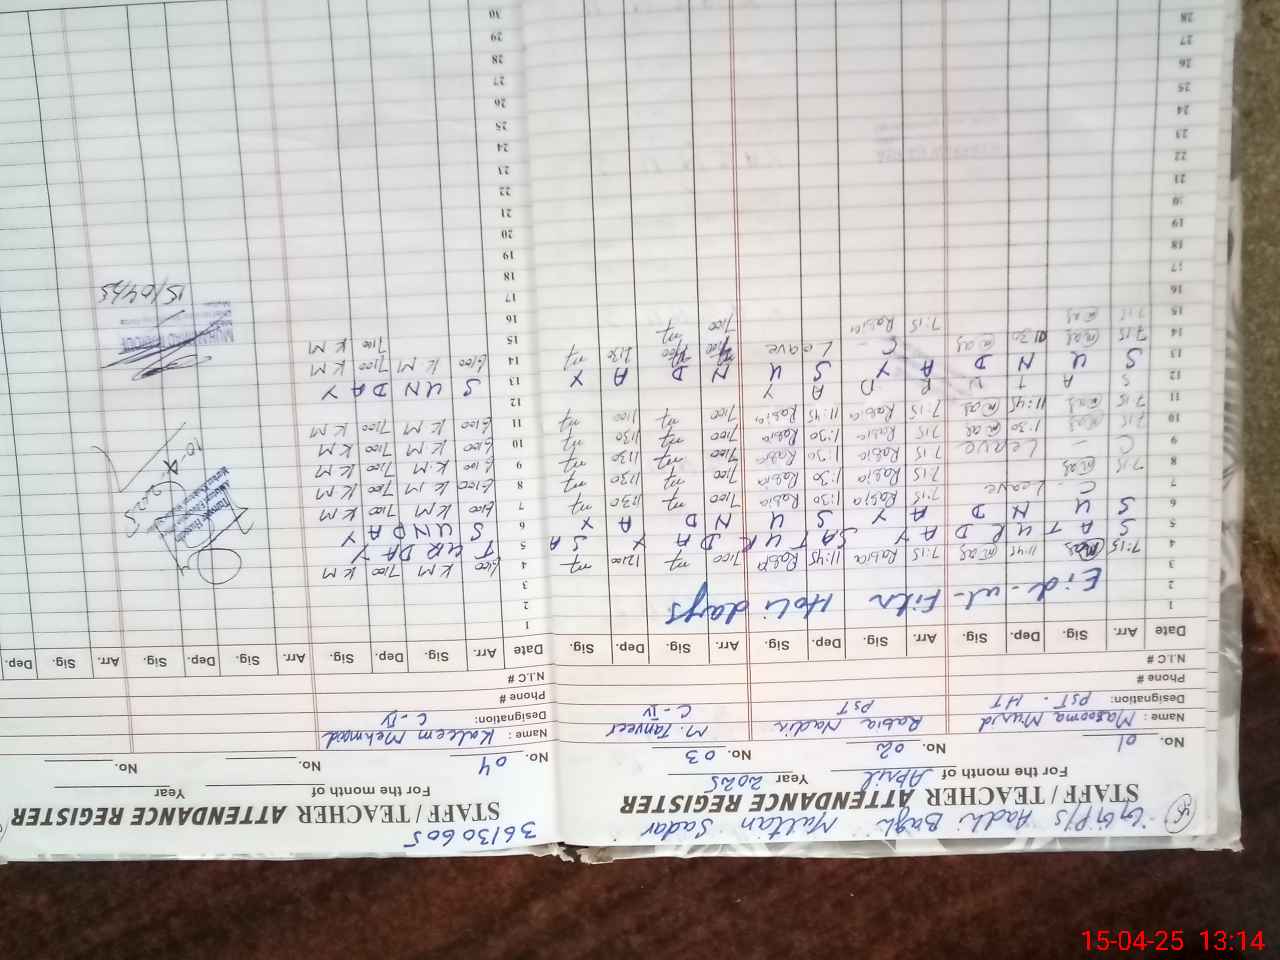 G.G.P/S Aadhi Bagh Multan Sadar
STAFF / TEACHER ATTENDANCE REGISTER
For the month of April Year 2025
No. 01 No. 02 No. 03
Name : Masooma Murid Rabia Nadir M. Tanveer
Designation: PST - HT PST C-IV
Phone #
N.I.C #
Date Arr. Sig. Dep. Sig. Arr. Sig. Dep. Sig. Arr. Sig. Dep. Sig.
1
2 Eid-ul-Fitr Holidays
3
4 7:15 11:45 7:15 Rabia 11:45 Rabia 7:00 12:00
5 S A T U R D A Y S A T U R D A Y S A
6 S U N D A Y S U N D A Y
7 C - Leave 7:15 Rabia 1:30 Rabia 7:00 1:30
8 7:15 7:15 Rabia 1:30 Rabia 7:00 1:30
9 C - Leave 7:15 Rabia 1:30 Rabia 7:00 1:30
10 7:15 1:30 7:15 Rabia 1:30 Rabia 7:00 1:30
11 7:15 11:45 7:15 Rabia 11:45 Rabia 7:00 1:00
12 S A T U R D A Y
13 S U N D A Y S U N D A Y
14 7:15 1:30 C - Leave 7:00 1:30
15 7:15 7:15 Rabia 7:00
16
17
18
19
20
21
22
23
24
25
26
27
28
36130605
STAFF / TEACHER ATTENDANCE REGISTER
For the month of Year
No. 04 No. No.
Name : Kaleem Mehmood
Designation: C-IV
Phone #
N.I.C #
Date Arr. Sig. Dep. Sig. Arr. Sig. Dep. Sig. Arr. Sig. Dep.
1
2
3
4 6:00 K M 7:00 K M
5 T U R D A Y
6 S U N D A Y
7 6:00 K M 7:00 K M
8 6:00 K M 7:00 K M
9 6:00 K M 7:00 K M
10 6:00 K M 7:00 K M
11 6:00 K M 7:00 K M
12
13 S U N D A Y
14 6:00 K M 7:00 K M
15 7:00 K M
16
17
18
19
20
21
22
23
24
25
26
27
28
29
30
15/04/25
15-04-25 13:14